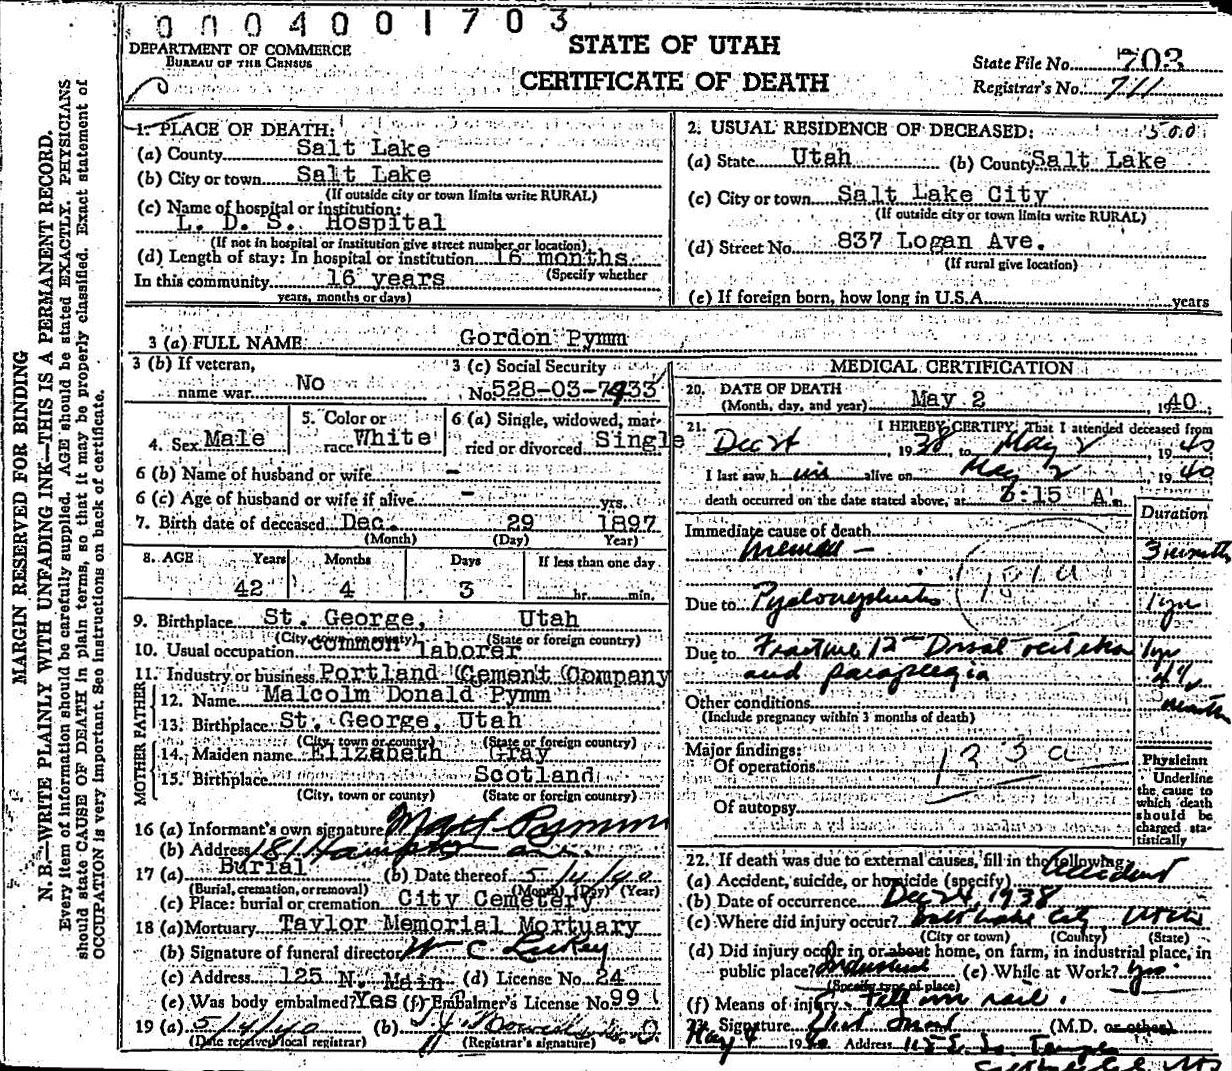 0004001703
DEPARTMENT OF COMMERCE
BUREAU OF THE CENSUS
STATE OF UTAH
CERTIFICATE OF DEATH
State File No. 703
Registrar's No. 711
MARGIN RESERVED FOR BINDING
N. B.—WRITE PLAINLY WITH UNFADING INK—THIS IS A PERMANENT RECORD.
Every item of information should be carefully supplied. AGE should be stated EXACTLY. PHYSICIANS
should state CAUSE OF DEATH in plain terms, so that it may be properly classified. Exact statement of
OCCUPATION is very important. See instructions on back of certificate.
1. PLACE OF DEATH:
(a) County Salt Lake
(b) City or town Salt Lake
(If outside city or town limits write RURAL)
(c) Name of hospital or institution:
L. D. S. Hospital
(If not in hospital or institution give street number or location)
(d) Length of stay: In hospital or institution 16 months
(Specify whether
In this community 16 years
years, months or days)
2. USUAL RESIDENCE OF DECEASED: 500
(a) State Utah (b) County Salt Lake
(c) City or town Salt Lake City
(If outside city or town limits write RURAL)
(d) Street No. 837 Logan Ave.
(If rural give location)
(e) If foreign born, how long in U.S.A. years
3 (a) FULL NAME Gordon Pymm
3 (b) If veteran,
name war No
3 (c) Social Security
No. 528-03-7933
4. Sex Male
5. Color or
race White
6 (a) Single, widowed, mar-
ried or divorced Single
6 (b) Name of husband or wife -
6 (c) Age of husband or wife if alive - yrs.
7. Birth date of deceased Dec. 29 1897
(Month) (Day) Year)
8. AGE Years Months Days If less than one day
42 4 3 hr. min.
9. Birthplace St. George, Utah
(City, town or county) (State or foreign country)
10. Usual occupation common laborer
11. Industry or business Portland Cement Company
FATHER
12. Name Malcolm Donald Pymm
13. Birthplace St. George, Utah
(City, town or county) (State or foreign country)
MOTHER
14. Maiden name Elizabeth Gray
15. Birthplace Scotland
(City, town or county) (State or foreign country)
16 (a) Informant's own signature Pymm
(b) Address 181 Hampton ave.
17 (a) Burial (b) Date thereof 5/4/40
(Burial, cremation, or removal) (Month) (Day) (Year)
(c) Place: burial or cremation City Cemetery
18 (a) Mortuary Taylor Memorial Mortuary
(b) Signature of funeral director W C
(c) Address 125 N. Main (d) License No. 24
(e) Was body embalmed? Yes (f) Embalmer's License No. 99
19 (a) 5/4/40 (b)
(Date received local registrar) (Registrar's signature)
MEDICAL CERTIFICATION
20. DATE OF DEATH
(Month, day, and year) May 2, 1940;
21. I HEREBY CERTIFY, That I attended deceased from
Dec 24, 1938, to May 2, 1940
I last saw him alive on May 2, 1940
death occurred on the date stated above, at 8:15 A.m.
Duration
Immediate cause of death
Uremia — 3 months
Due to Pyelonephritis 1 yr
Due to Fracture 12th Dorsal vertebra 1 yr
and paraplegia 4 1/2 months
Other conditions
(Include pregnancy within 3 months of death)
Major findings:
Of operations 123a
Of autopsy
Physician
Underline
the cause to
which death
should be
charged sta-
tistically
22. If death was due to external causes, fill in the following:
(a) Accident, suicide, or homicide (specify) Accident
(b) Date of occurrence Dec 24, 1938
(c) Where did injury occur? Salt Lake City, Utah
(City or town) (County) (State)
(d) Did injury occur in or about home, on farm, in industrial place, in
public place? Industrial (e) While at Work? Yes.
(Specify type of place)
(f) Means of injury Fell on rail.
23. Signature (M.D. or other)
May 4 1940 Address 115 E. So. Temple